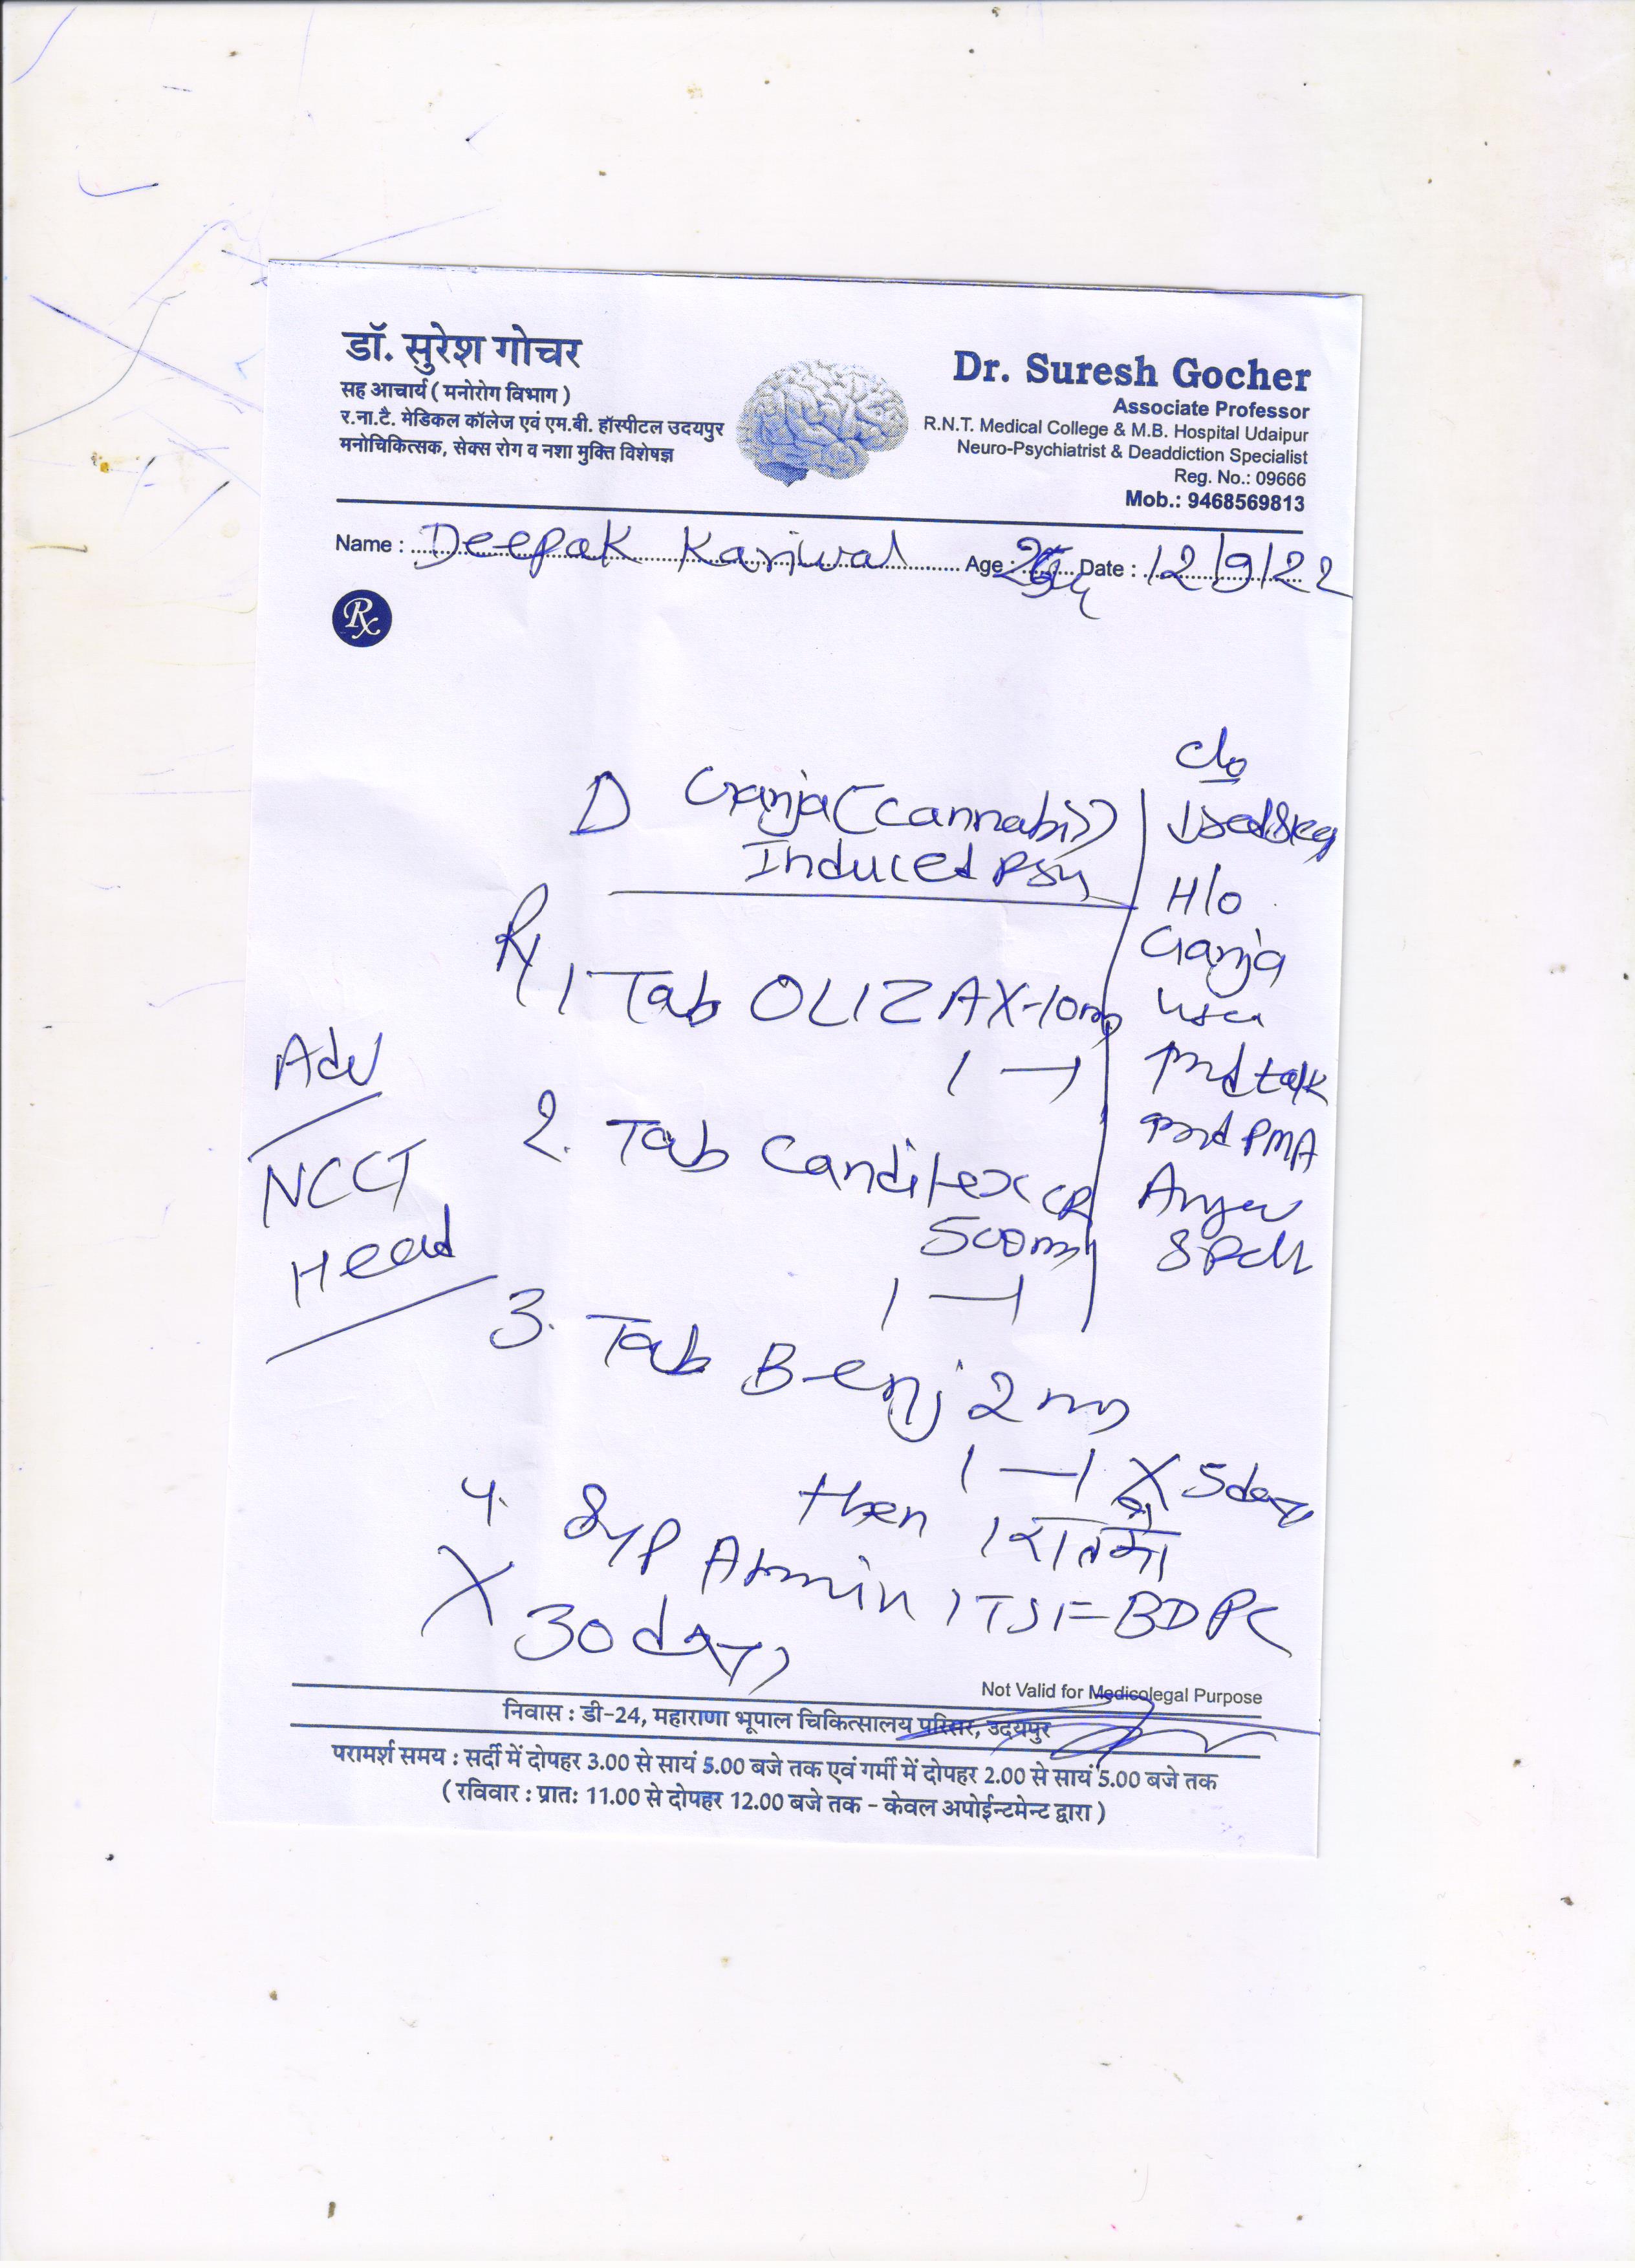 डॉ. सुरेश गोचर
सह आचार्य ( मनोरोग विभाग )
र.ना.टै. मेडिकल कॉलेज एवं एम.बी. हॉस्पीटल उदयपुर
मनोचिकित्सक, सेक्स रोग व नशा मुक्ति विशेषज्ञ
Dr. Suresh Gocher
Associate Professor
R.N.T. Medical College & M.B. Hospital Udaipur
Neuro-Psychiatrist & Deaddiction Specialist
Reg. No.: 09666
Mob.: 9468569813
Name : Deepak Kariwal Age : Date : 12/9/22
Rx
D Ganja (Cannabis)
Induced Psy
c/o
H/o
Ganja
use
talk
PMA
Anger
Rx 1 Tab OLIZAX-10mg
1 — 1
2. Tab Canditex CR
500mg
1 — 1
3. Tab Benj 2mg
1 — 1 X 5days
then 1 रात को
4. Syp 1TSF BD PC
X 30 days
Adv
NCCT
Head
Not Valid for Medicolegal Purpose
निवास : डी-24, महाराणा भूपाल चिकित्सालय परिसर, उदयपुर
परामर्श समय : सर्दी में दोपहर 3.00 से सायं 5.00 बजे तक एवं गर्मी में दोपहर 2.00 से सायं 5.00 बजे तक
( रविवार : प्रातः 11.00 से दोपहर 12.00 बजे तक - केवल अपोईन्टमेन्ट द्वारा )